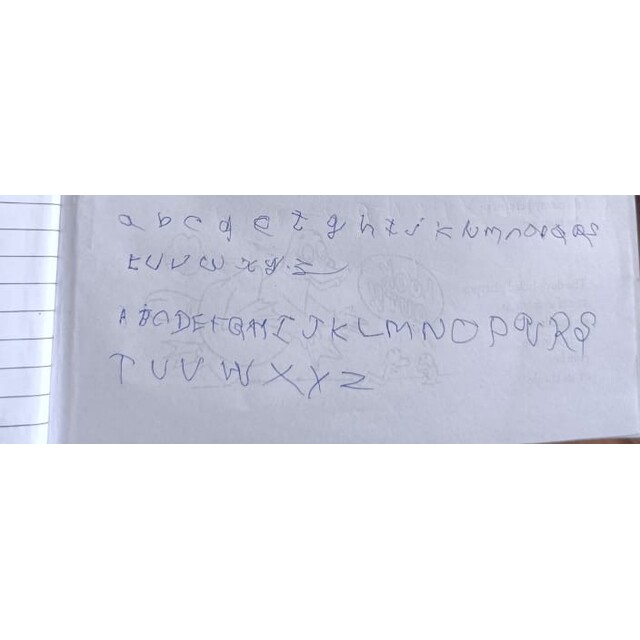 a b c d e f g h i j k l m n o p q r s
t u v w x y z
A B C D E F G H I J K L M N O P Q R S
T U V W X Y Z